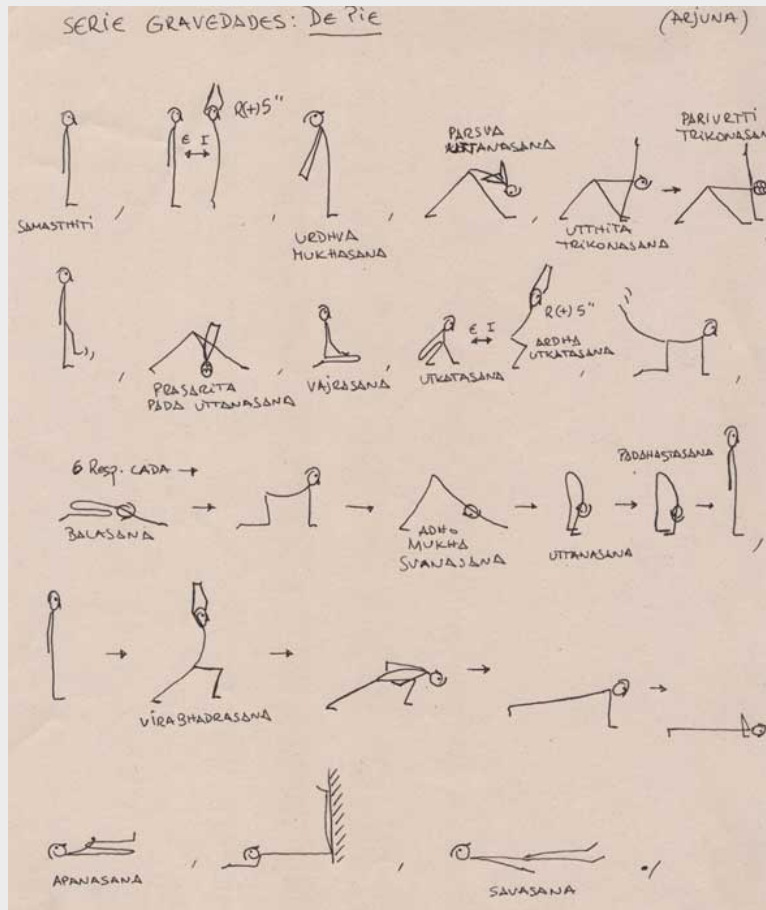 SERIE GRAVEDADES: DE PIE (ARJUNA)
R(+)5"
E I
SAMASTHITI
URDHVA
MUKHASANA
PARSVA
UTTANASANA
UTTHITA
TRIKONASANA
PARIVRTTI
TRIKONASAN
PRASARITA
PADA UTTANASANA
VAJRASANA
E I
UTKATASANA
R(+)5"
ARDHA
UTKATASANA
6 Resp. CADA →
BALASANA
ADHO
MUKHA
SVANASANA
UTTANASANA
PADAHASTASANA
VIRABHADRASANA
APANASANA
SAVASANA